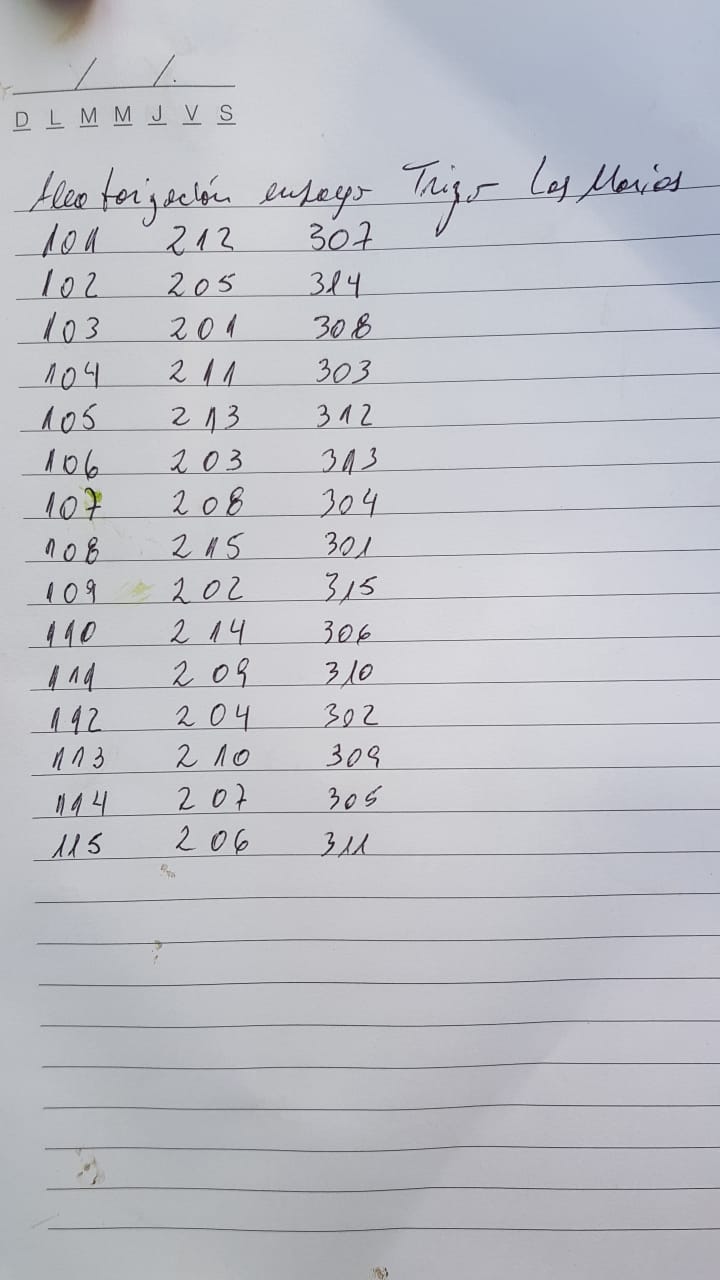 / /.
D L M M J V S
Aleatorización ensayo Trigo Las Marias
101 212 307
102 205 314
103 201 308
104 211 303
105 213 312
106 203 313
107 208 304
108 215 301
109 202 315
110 214 306
111 209 310
112 204 302
113 210 309
114 207 305
115 206 311